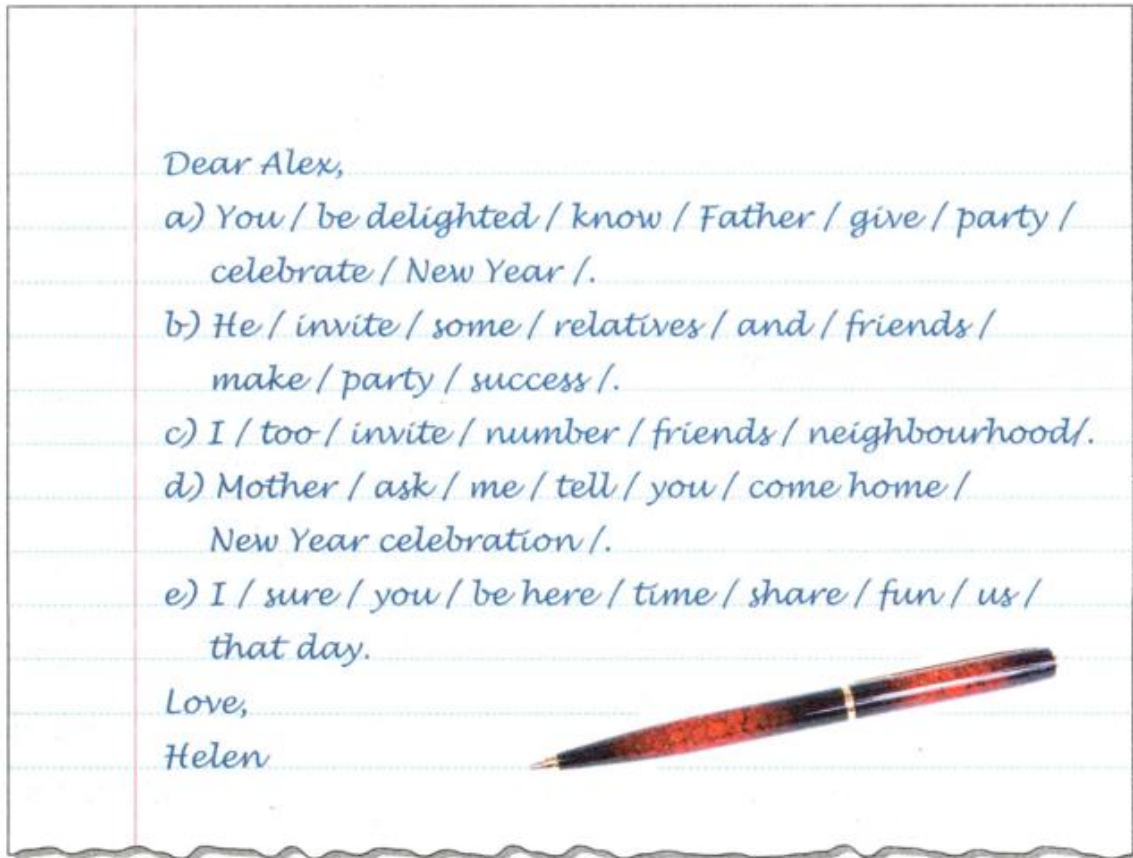 Dear Alex,
a) You / be delighted / know / Father / give / party /
celebrate / New Year /.
b) He / invite / some / relatives / and / friends /
make / party / success /.
c) I / too / invite / number / friends / neighbourhood/.
d) Mother / ask / me / tell / you / come home /
New Year celebration /.
e) I / sure / you / be here / time / share / fun / us /
that day.
Love,
Helen